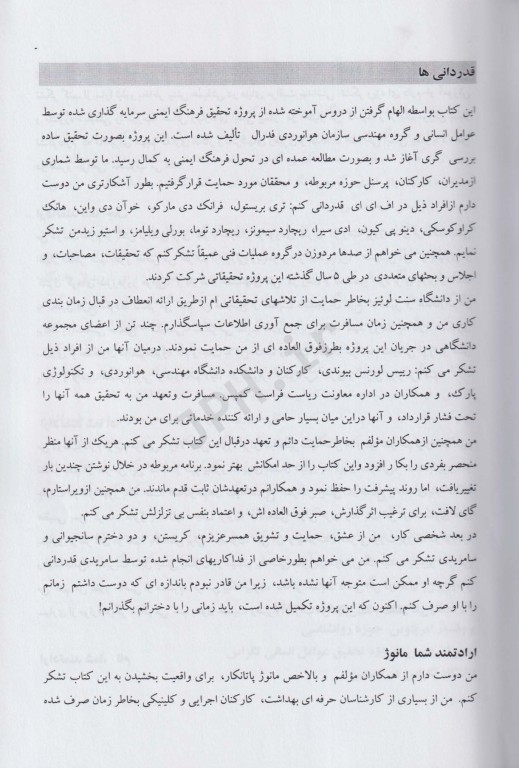 قدردانی ها
این کتاب بواسطه الهام گرفتن از دروس آموخته شده از پروژه تحقیق فرهنگ ایمنی سرمایه گذاری شده توسط
عوامل انسانی و گروه مهندسی سازمان هوانوردی فدرال تألیف شده است. این پروژه بصورت تحقیق ساده
بررسی گری آغاز شد و بصورت مطالعه عمده ای در تحول فرهنگ ایمنی به کمال رسید. ما توسط شماری
ازمدیران، کارکنان، پرسنل حوزه مربوطه، و محققان مورد حمایت قرارگرفتیم. بطور آشکارتری من دوست
دارم ازافراد ذیل در اف ای ای قدردانی کنم: تری بریستول، فرانک دی مارکو، خوآن دی واین، هانک
کراوکوسکی، دینو پی کیون، ادی سیرا، ریچارد سیمونز، ریچارد توما، بورلی ویلیامز، و استیو زیدمن تشکر
نمایم. همچنین می خواهم از صدها مردوزن درگروه عملیات فنی عمیقاً تشکرکنم که تحقیقات، مصاحبات، و
اجلاس و بحثهای متعددی در طی ۵ سال گذشته این پروژه تحقیقاتی شرکت کردند.
من از دانشگاه سنت لوئیز بخاطر حمایت از تلاشهای تحقیقاتی ام ازطریق ارائه انعطاف در قبال زمان بندی
کاری من و همچنین زمان مسافرت برای جمع آوری اطلاعات سپاسگذارم. چند تن از اعضای مجموعه
دانشگاهی در جریان این پروژه بطرزفوق العاده ای از من حمایت نمودند. درمیان آنها من از افراد ذیل
تشکر می کنم: رییس لورنس بیوندی، کارکنان و دانشکده دانشگاه مهندسی، هوانوردی، و تکنولوژی
پارک، و همکاران در اداره معاونت ریاست فراست کمپس. مسافرت وتعهد من به تحقیق همه آنها را
تحت فشار قرارداد، و آنها دراین میان بسیار حامی و ارائه کننده خدماتی برای من بودند.
من همچنین ازهمکاران مؤلفم بخاطرحمایت دائم و تعهد درقبال این کتاب تشکر می کنم. هریک از آنها منظر
منحصر بفردی را بکا ر افزود واین کتاب را از حد امکانش بهتر نمود. برنامه مربوطه در خلال نوشتن چندین بار
تغییریافت، اما روند پیشرفت را حفظ نمود و همکارانم درتعهدشان ثابت قدم ماندند. من همچنین ازویراستارم،
گای لافت، برای ترغیب اثرگذارش، صبر فوق العاده اش، و اعتماد بنفس بی تزلزلش تشکر می کنم.
در بعد شخصی کار، من از عشق، حمایت و تشویق همسرعزیزم، کریستن، و دو دخترم سانجیوانی و
سامریدی تشکر می کنم. من می خواهم بطورخاصی از فداکاریهای انجام شده توسط سامریدی قدردانی
کنم گرچه او ممکن است متوجه آنها نشده باشد، زیرا من قادر نبودم باندازه ای که دوست داشتم زمانم
را با او صرف کنم. اکنون که این پروژه تکمیل شده است، باید زمانی را با دخترانم بگذرانم!
ارادتمند شما مانوژ
من دوست دارم از همکاران مؤلفم و بالاخص مانوژ پاتانکار، برای واقعیت بخشیدن به این کتاب تشکر
کنم. من از بسیاری از کارشناسان حرفه ای بهداشت، کارکنان اجرایی و کلینیکی بخاطر زمان صرف شده